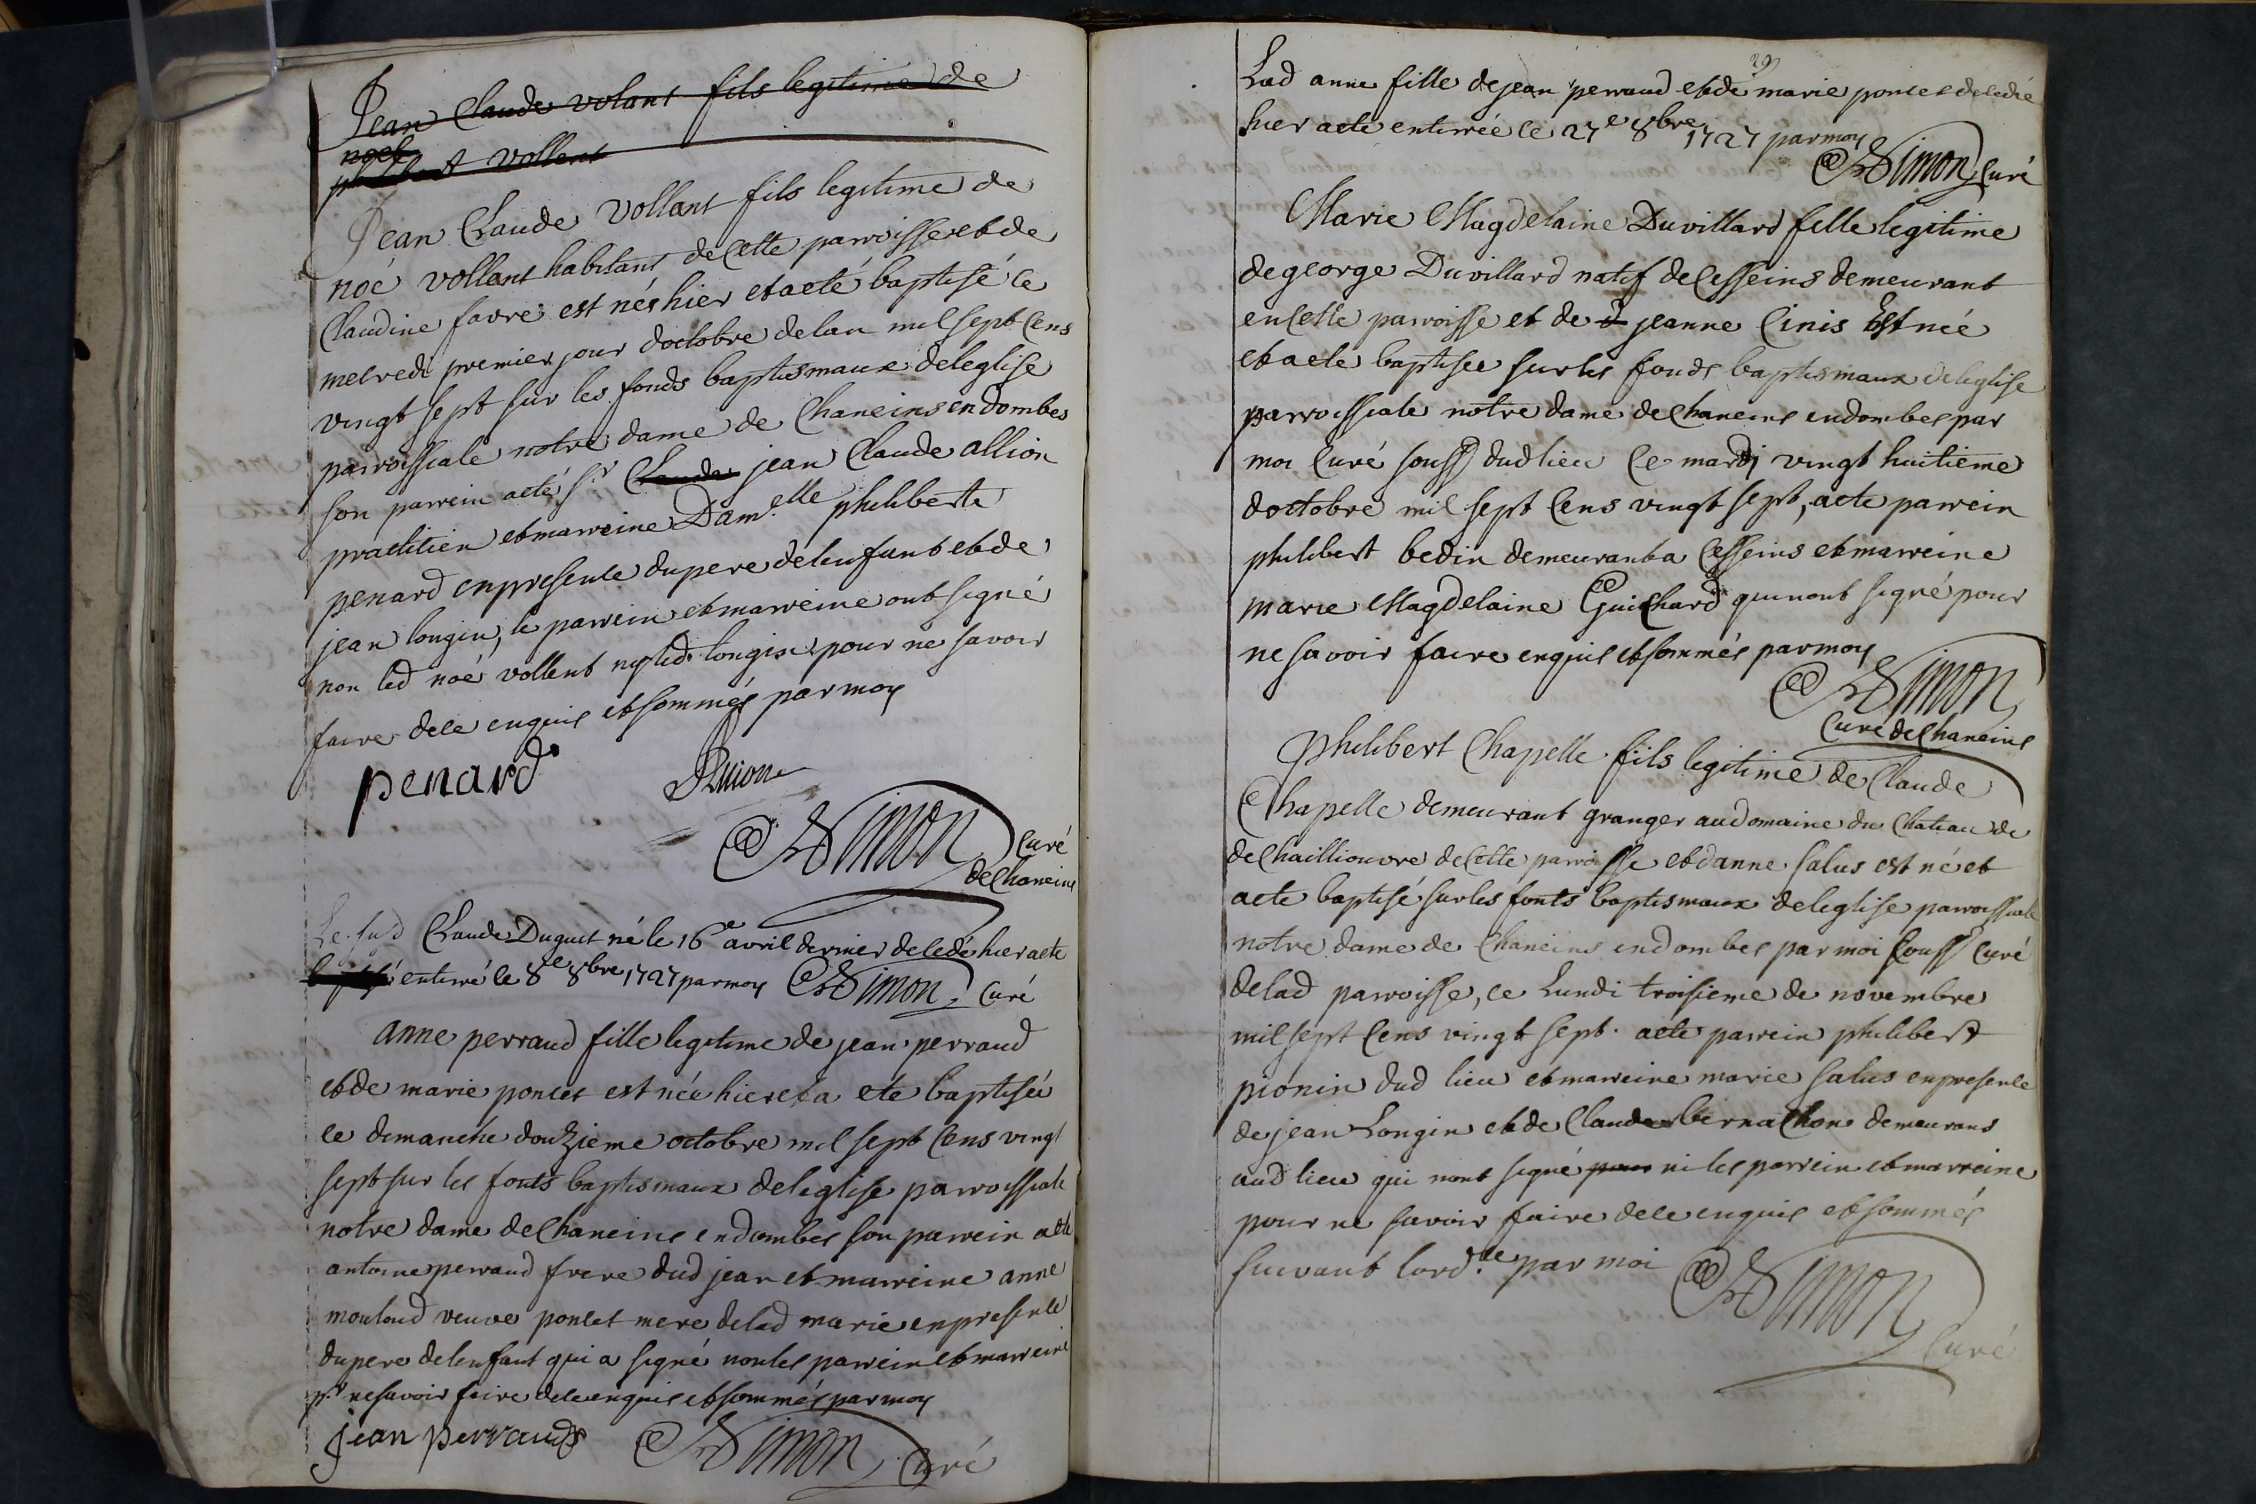 Jean Claude volant fils legitime de
noel
philibert vollent
Jean Claude Vollant fils legitime de
noé vollant habitant de Cette parroisse et de
Claudine favre est né hier et a eté baptisé ce
mecredi premier jour doctobre de lan mil sept Cens
vingt sept sur les fonds baptismaux de leglise
parroissiale notre dame de Chaneins en dombes
son parrein a eté sr Claude jean Claude allion
practitien et marreine Damelle philiberte
penard en presence du pere de lenfant et de
jean longin, le parrein et marreine ont signé
non led noé vollent ny led longin pour ne savoir
faire de ce enquis et sommés par moy
penard
Simon Curé
de Chaneins
Le sud Claude Duguet né le 16e avril dernier decedé hier a eté
baptisé enterré le 8e 8bre 1727 par moy Simon Curé
anne perraud fille legitime de jean perraud
et de marie poncet est née hier et a eté baptisée
ce dimanche douzieme octobre mil sept Cens vingt
sept sur les fonts baptismaux de leglise parroissiale
notre dame de Chaneins en dombes son parrein a eté
antoine perraud frere dud jean et marreine anne
mouloud veuve poncet mere de lad marie en presence
du pere de lenfant qui a signé non les parrein et marreine
pr ne savoir faire de ce enquis et sommés par moy
jean perrauds Simon Curé
29
Lad anne fille de jean perraud et de marie poncet decedée
hier a eté enterrée le 27e 8bre 1727 par moy
Simon Curé
Marie Magdelaine Duvillard fille legitime
de george Duvillard natif de Cesseins demeurant
en cette parroisse et de d jeanne Cinis Est née
et a eté baptisée sur les fonds baptismaux de leglise
parroissiale notre dame de Chaneins en dombes par
moi Curé souss dud lieu Ce mardj vingt huitieme
doctobre mil sept Cens vingt sept, a eté parrein
philibert bedin demeurant a Cesseins et marreine
marie Magdelaine Guichard qui nont signé pour
ne savoir faire enquis et sommés par moy
Simon
Curé de Chaneins
Philibert Chapelle fiils legitime de Claude
Chapelle demeurant granger au domaine du Chateau de
de Chailliouvre de Cette parroisse et danne salus est né et
a eté baptisé sur les fonts baptismaux de leglise parroissiale
notre dame de Chaneins en dombes par moi souss Curé
de lad parroisse, ce Lundi troisieme de novembre
mil sept Cens vingt sept. a eté parrein philibert
pionin dud lieu et marreine marie salus en presence
de jean Longin et de Claude bernachon demeurans
aud lieu qui nont signé pour ni les parrein et marreine
pour ne savoir faire de ce enquis et sommés
suivant lord.ce par moi Simon
Curé